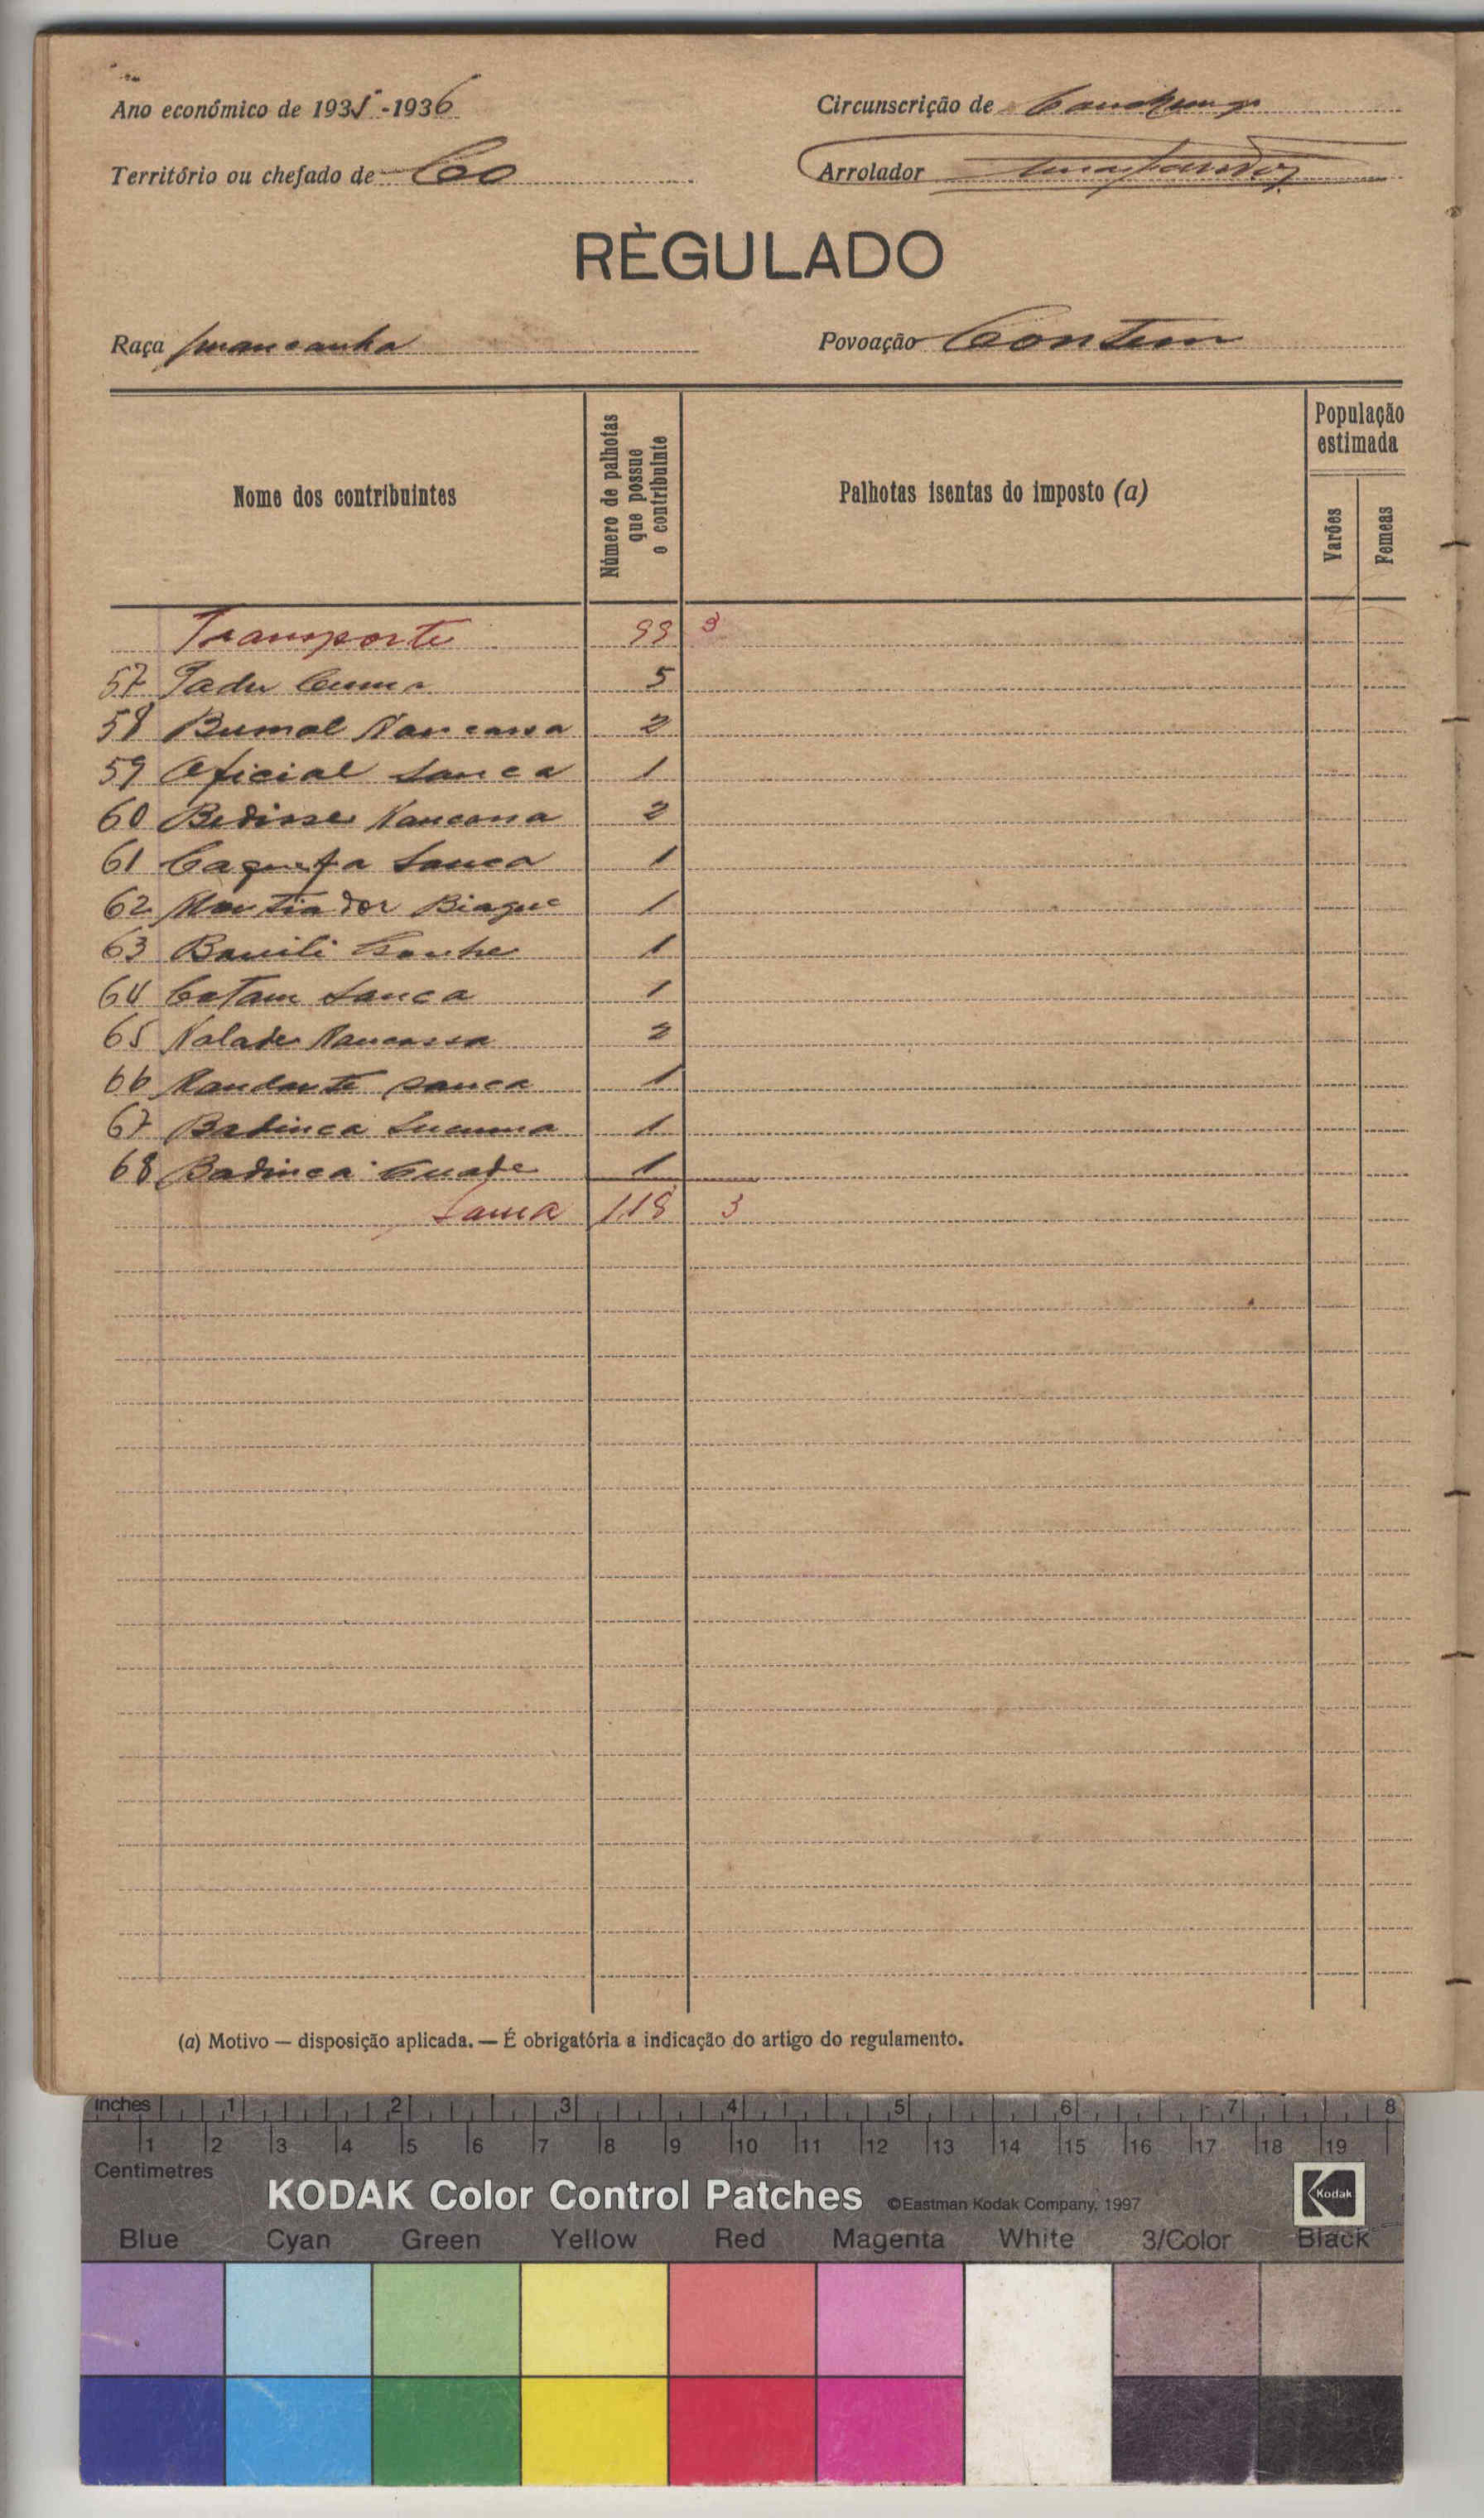 Ano económico de 1935-1936
Circunscrição de
Território ou chefado de Co
Arrolador
RÈGULADO
Raça mancanha
Povoação Contem
Nome dos contribuintes
Número de palhotas que possue o contribuinte
Palhotas isentas do imposto (a)
População estimada
Varões
Femeas
Transporte 99 3
57 Tadu 5
58 Bumal Nancassa 2
59 Oficial Sanca 1
60 Bedisse Nancassa 2
61 Sanca 1
62 Biague 1
63 1
64 Catam Sanca 1
65 Nalade Nancassa 2
66 Sanca 1
67 Badinca 1
68 Badinca 1
Soma 118 3
(a) Motivo — disposição aplicada. — É obrigatória a indicação do artigo do regulamento.
inches 1 2 3 4 5 6 7 8
1 2 3 4 5 6 7 8 9 10 11 12 13 14 15 16 17 18 19
Centimetres
KODAK Color Control Patches ©Eastman Kodak Company, 1997 Kodak
Blue Cyan Green Yellow Red Magenta White 3/Color Black